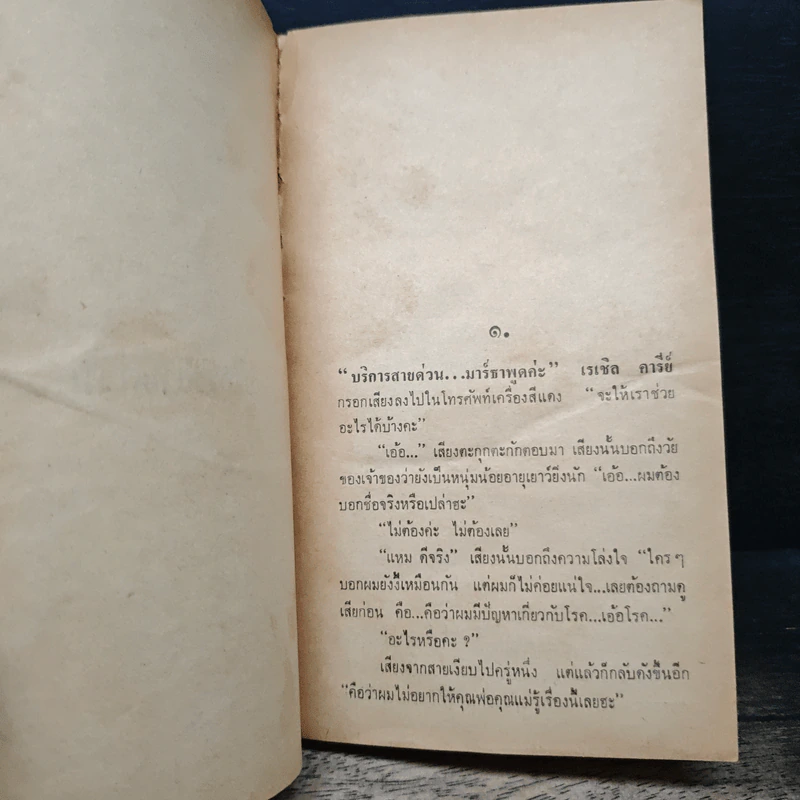 ๑.
“บริการสายด่วน...มาร์ธาพูดค่ะ” เรเชิล คารีย์
กรอกเสียงลงไปในโทรศัพท์เครื่องสีแดง “จะให้เราช่วย
อะไรได้บ้างคะ”
“เอ้อ...” เสียงตะกุกตะกักตอบมา เสียงนั้นบอกถึงวัย
ของเจ้าของว่ายังเป็นหนุ่มน้อยอายุเยาว์ยิ่งนัก “เอ้อ...ผมต้อง
บอกชื่อจริงหรือเปล่าฮะ”
“ไม่ต้องค่ะ ไม่ต้องเลย”
“แหม ดีจริง” เสียงนั้นบอกถึงความโล่งใจ “ใคร ๆ
บอกผมยังงี้เหมือนกัน แต่ผมก็ไม่ค่อยแน่ใจ...เลยต้องถามดู
เสียก่อน คือ...คือว่าผมมีปัญหาเกี่ยวกับโรค...เอ้อโรค...”
“อะไรหรือคะ ?”
เสียงจากสายเงียบไปครู่หนึ่ง แต่แล้วก็กลับดังขึ้นอีก
“คือว่าผมไม่อยากให้คุณพ่อคุณแม่รู้เรื่องนี้เลยฮะ”